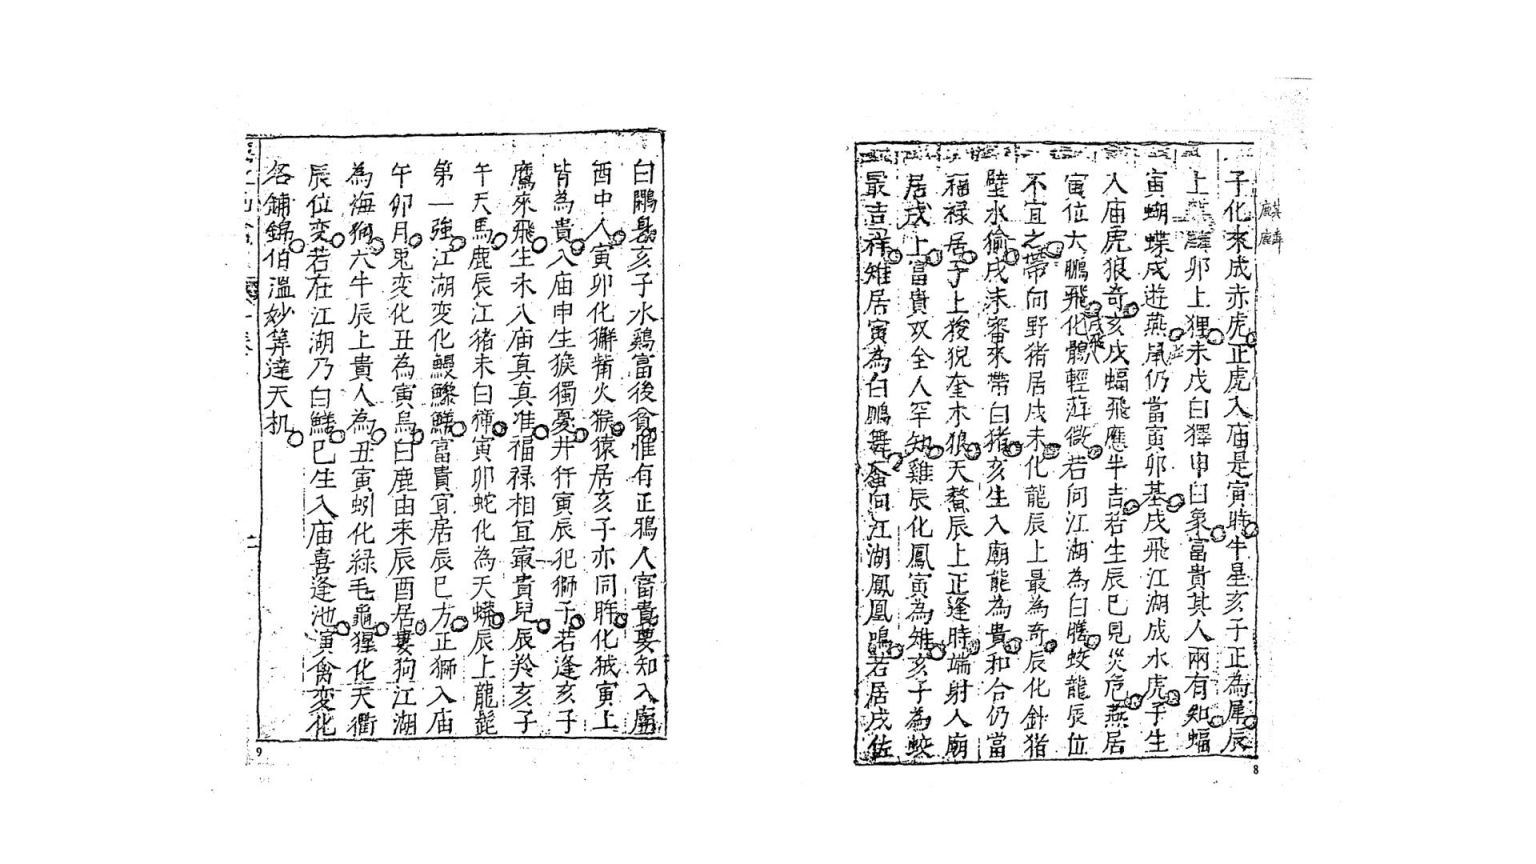 麒麟
子化來成赤虎正虎入庙是寅時牛星亥子正為犀辰
上麒麟卯上狸未戊白獐申白象富貴其人兩有知蝠
寅蝴蝶戌遊燕鼠仍當寅卯基戌飛江湖成水虎子生
入庙虎狼奇亥戌蝠飛應半吉若生辰巳見災危燕居
寅位大鵬飛化鶻輕薄微若向江湖為白鱔蛟龍辰位
不宜之帶向野猪居戌未化龍辰上最為奇辰化針猪
壁水偷戌未審來帶白猪亥生入廟能為貴和合仍當
福禄居子上狻猊奎木狼天鰲辰上正逢時端射人廟
居戌上富貴双全人罕知雞辰化鳳寅為雉亥子為蛟
最吉祥雉居寅為白鵬舞 向江湖鳳凰鳴若居戌佐
8
白鵬 亥子水鷄富後貧惟有正鴉人富貴要知入廟
酉中人寅卯化獬觜火猴猿居亥子亦同眸化狨寅上
皆為貴入庙申生猴獨憂井犴寅辰犯獅子若逢亥子
鷹來飛生未入庙真真准福禄相宜最貴兒辰羚亥子
午天馬鹿辰江猪未白 寅卯蛇化為天蟒辰上龍髭
第一強江湖变化鰻鱳鱔富貴宜居辰巳方正獅入庙
午卯月鬼变化丑為寅烏白鹿由来辰酉居婁狗江湖
為海狗六牛辰上貴人為丑寅蚓化緑毛龜猩化天衢
辰位变若在江湖乃白鱔巳生入庙喜逢池寅禽变化
名鋪錦伯温妙筭達天机
9